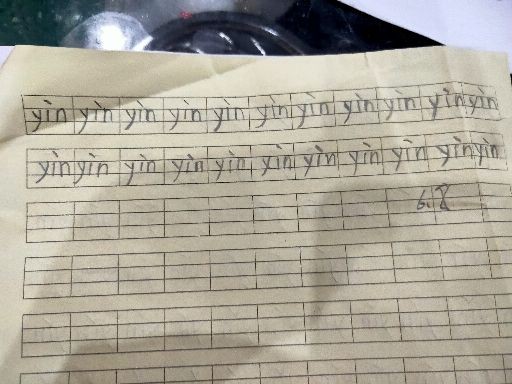 yìn yìn yìn yìn yìn yìn yìn yìn yìn yìn yìn
yìn yìn yìn yìn yìn yìn yìn yìn yìn yìn yìn